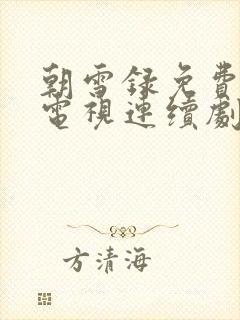 朝雪録免費
電視連續劇
方清海